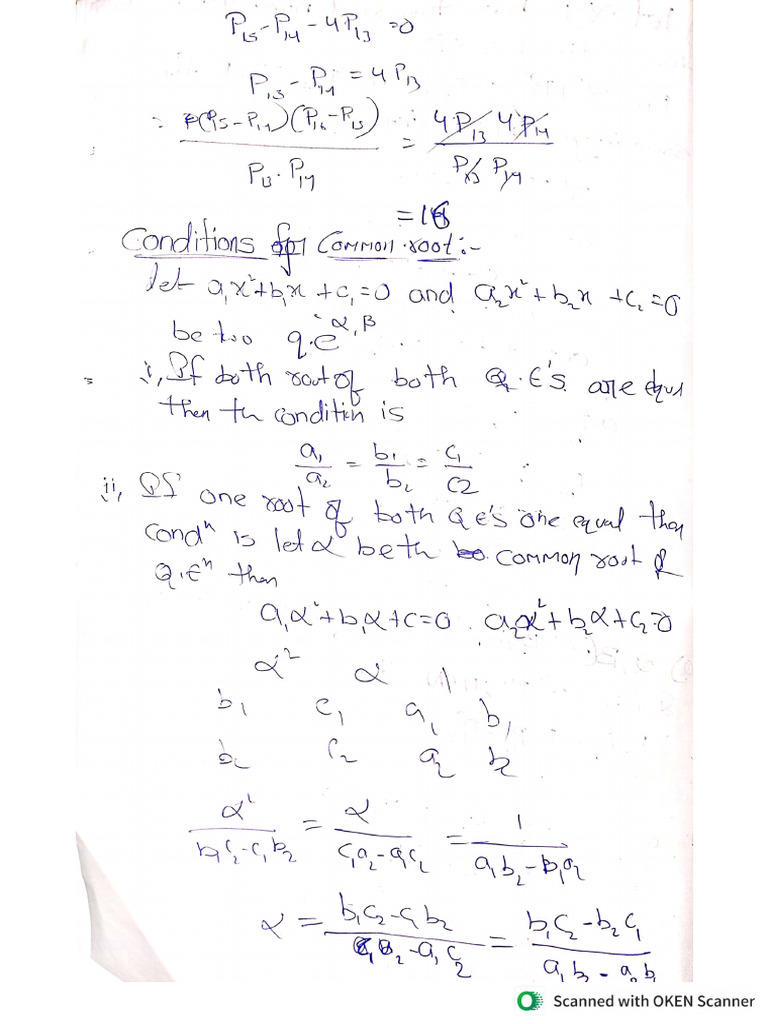 P₁₅ - P₁₄ - 4P₁₃ = 0
P₁₅ - P₁₄ = 4P₁₃
= (P₁₅ - P₁₄)(P₁₆ - P₁₅) / P₁₃ · P₁₄ = 4P₁₃ 4P₁₄ / P₁₃ P₁₄
= 16
Conditions for Common root :-
let a₁x² + b₁x + c₁ = 0 and a₂x² + b₂x + c₂ = 0
be two q.e α, β
i, If both root of both Q.E's are equal
then th condition is
a₁/a₂ = b₁/b₂ = c₁/c₂
ii, If one root of both QE's one equal then
condⁿ is let α be th common root of
Q.Eⁿ then
a₁α² + b₁α + c = 0 a₂α² + b₂α + c₂ = 0
α² α 1
b₁ c₁ a₁ b₁
b₂ c₂ a₂ b₂
α² / b₁c₂ - c₁b₂ = α / c₁a₂ - a₁c₂ = 1 / a₁b₂ - b₁a₂
α = b₁c₂ - c₁b₂ / c₁a₂ - a₁c₂ = b₁c₂ - b₂c₁ / a₁b₂ - a₂b₁
Scanned with OKEN Scanner